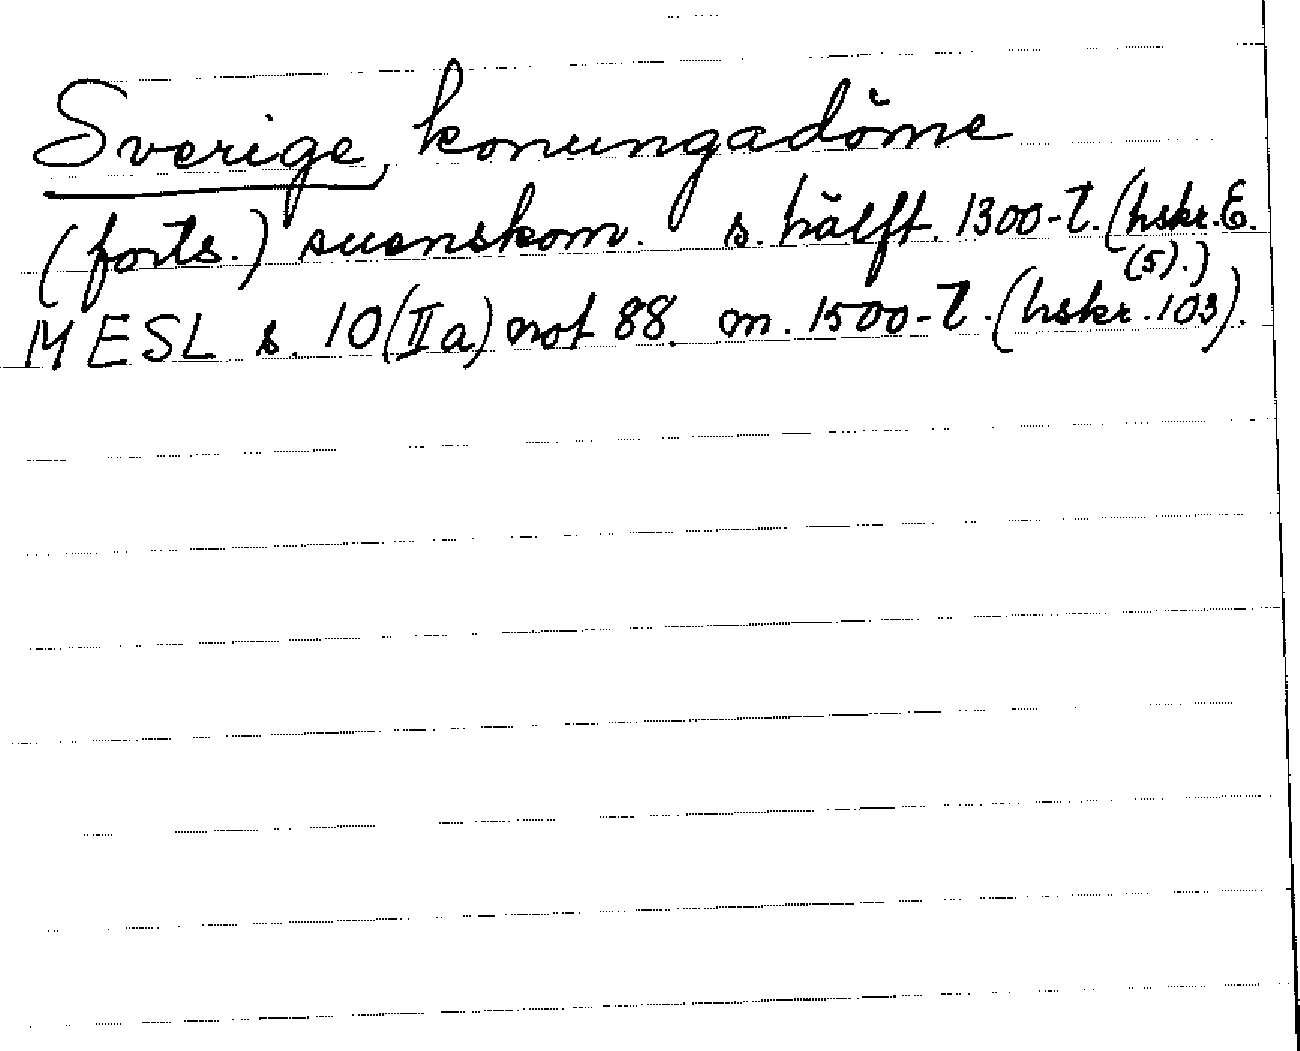 Sverige, konungadöme
(forts.) suenskom. s. hälft. 1300-t. (hskr. E.
(5).)
MESL s. 10 (IIa) not 88. m. 1500-t. (hskr. 103).